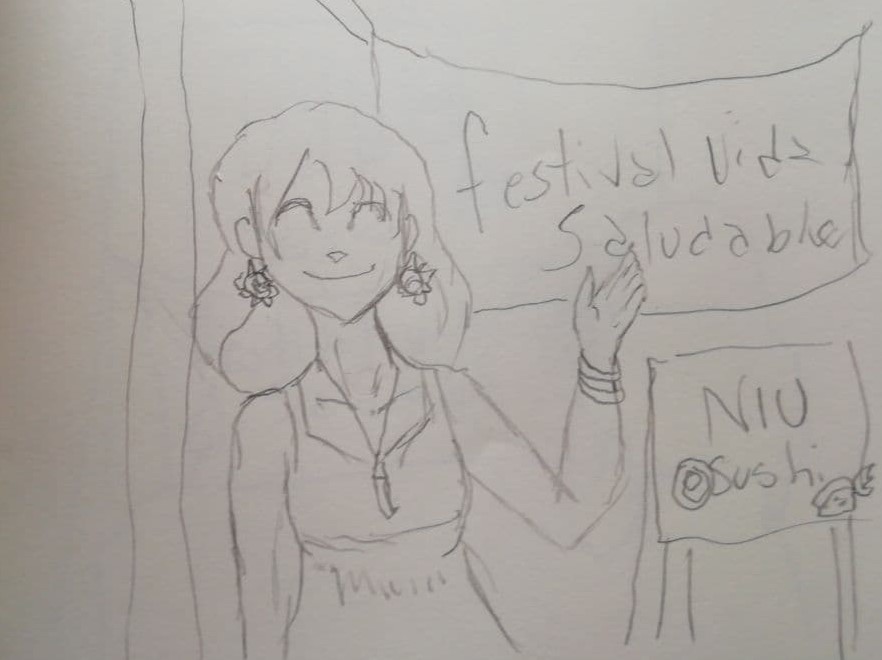 festival Vida
Saludable
NIU
Sushi